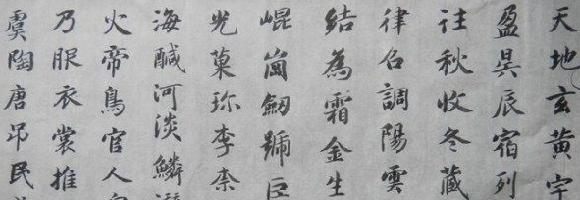 天地玄黃宇
盈昃辰宿列
往秋收冬藏
律召調陽雲
結為霜金生
崐崗劒號巨
光菓珍李柰
海醎河淡鱗
火帝鳥官人
乃服衣裳推
虞陶唐吊民